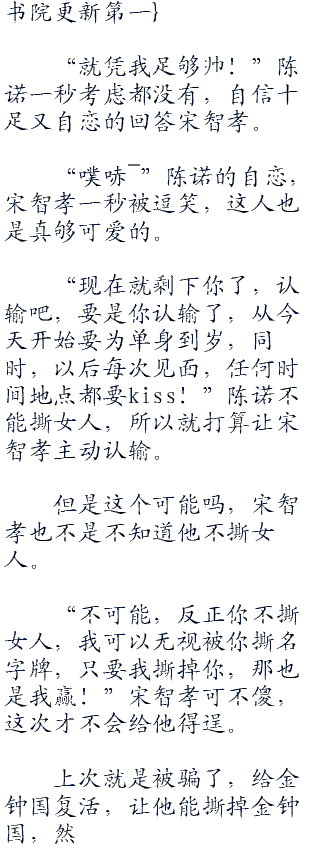 书院更新第一}
“就凭我足够帅！”陈
诺一秒考虑都没有，自信十
足又自恋的回答宋智孝。
“噗哧¯”陈诺的自恋，
宋智孝一秒被逗笑，这人也
是真够可爱的。
“现在就剩下你了，认
输吧，要是你认输了，从今
天开始要为单身到岁，同
时，以后每次见面，任何时
间地点都要kiss！”陈诺不
能撕女人，所以就打算让宋
智孝主动认输。
但是这个可能吗，宋智
孝也不是不知道他不撕女
人。
“不可能，反正你不撕
女人，我可以无视被你撕名
字牌，只要我撕掉你，那也
是我赢！”宋智孝可不傻，
这次才不会给他得逞。
上次就是被骗了，给金
钟国复活，让他能撕掉金钟
国，然